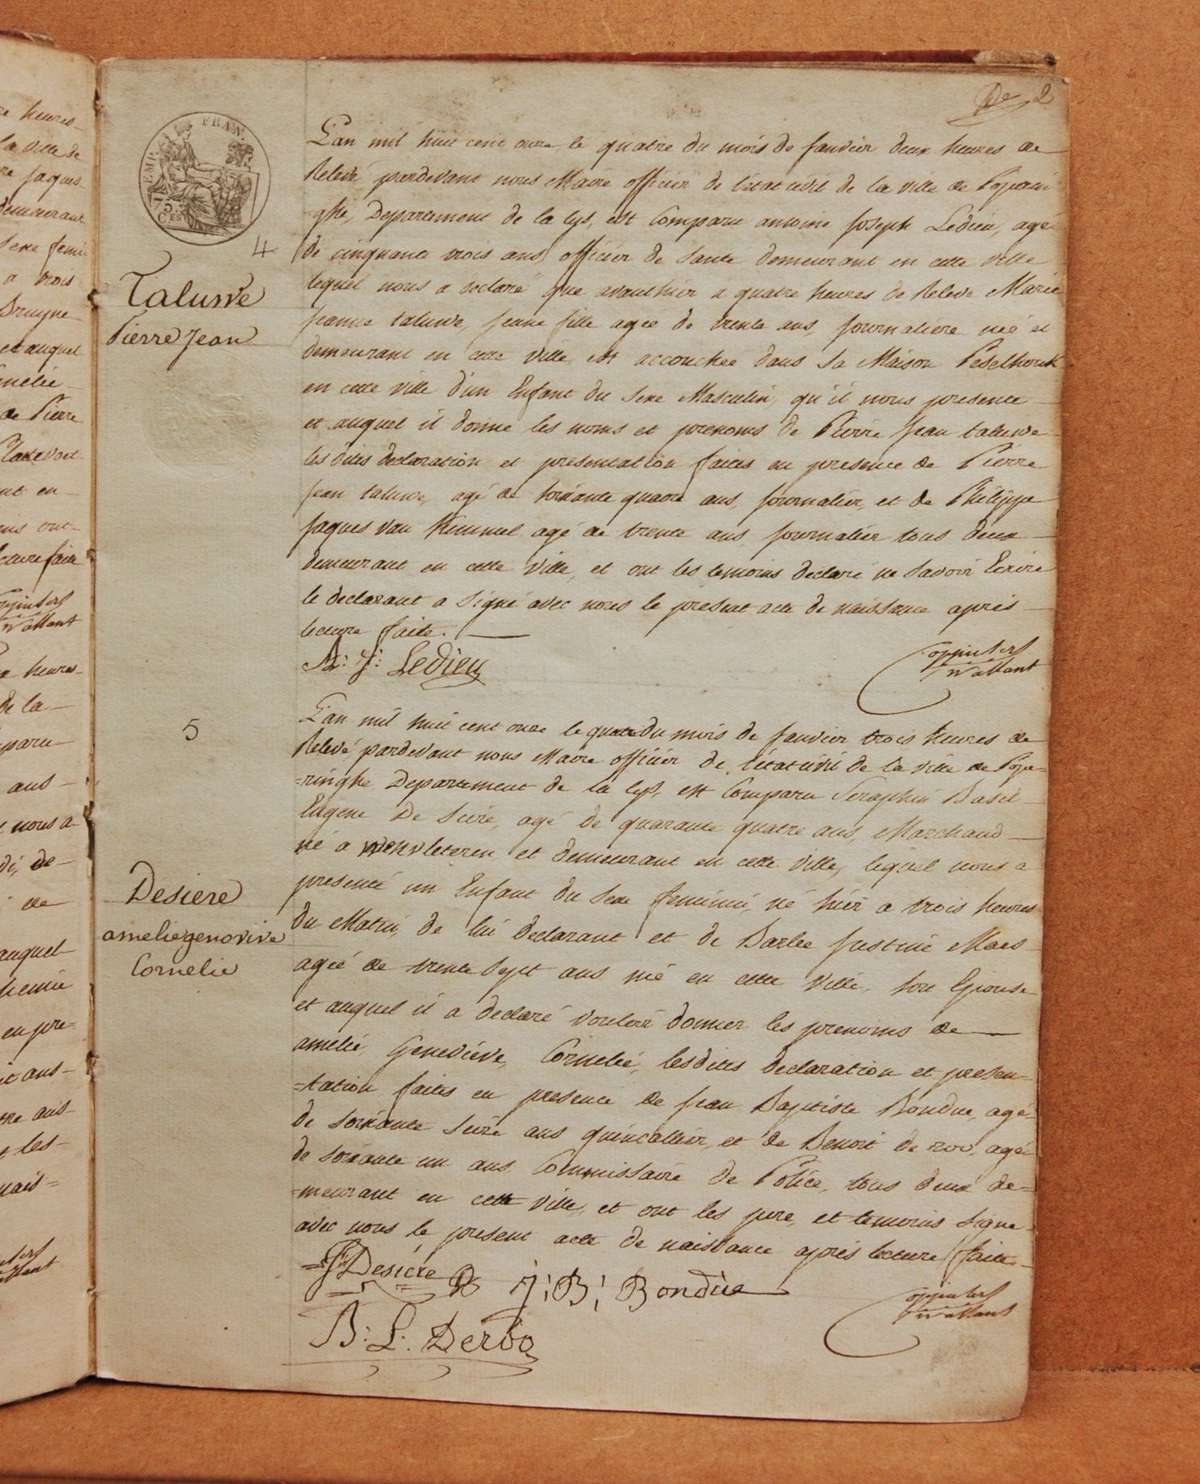 De 2
EMPI FRAN.
75
CES
4
Taluwe
Pierre Jean
L'an mil huit cent onze, le quatre du mois de Janvier deux heures de
Relevé pardevant nous Maire officier de l'etat civil de la ville de Poperin
ghe, Departement de la Lys, est Comparu antoine Joseph Ledieu, agé
de cinquante trois ans officier de Santé demeurant en cette ville
lequel nous a declaré que avanthier a quatre heures de Relevé Marie
Jeanne taluwe, Jeune fille agée de trente ans, journaliere née et
demeurant en cette ville, est accouchée dans sa Maison
en cette ville d'un Enfant du Sexe Masculin, qu'il nous presente
et auquel il donne les noms et prenoms de Pierre Jean taluwe
lesdites declaration et presentation faites en presence de Pierre
Jean taluwe, agé de soixante quatre ans, journalier, et de Philippe
Jaques Van Kemmel agé de trente ans journalier tous deux
demeurant en cette ville, et ont les temoins declaré ne savoir Ecrire
le declarant a Signé avec nous le present acte de naissance après
lecture faite.
A: J: Ledieu
5
Desiere
amelie genovive
Cornelie
L'an mil huit cent onze le quatre du mois de Janvier trois heures de
Relevé pardevant nous Maire officier de l'etat civil de la ville de Pope-
-ringhe, Departement de la Lys, est Comparu Seraphin Basil
Eugene De Siere, agé de quarante quatre ans, Marchand
né a westvleteren, et demeurant en cette ville, lequel nous a
presenté un Enfant du Sexe feminin, né hier a trois heures
du Matin, de lui declarant et de Barbe Justine Maes
agée de trente Sept ans née en cette ville, son Epouse
et auquel il a declaré vouloir donner les prenoms de
amelie Genevieve, Cornelie, lesdites declaration et presen-
-tation faites en presence de Jean Baptiste Bondue, agé
de soixante Seize ans quincallier, et de Benoit de agé
de soixante un ans Commissaire de Police, tous deux de-
-meurant en cette ville, et ont les pere, et temoins signé
avec nous le present acte de naissance après lecture faite
Desiere
J: B: Bondue
B: L: Derbo